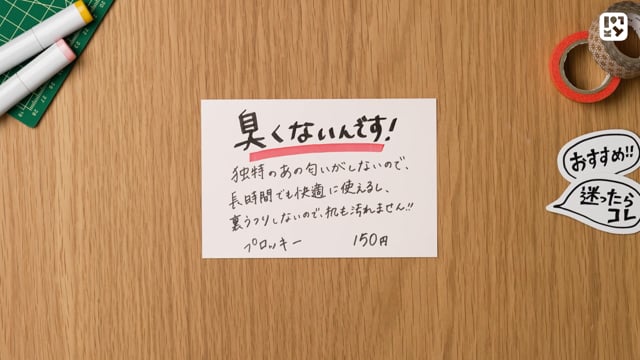 臭くないんです!
独特のあの匂いがしないので、
長時間でも快適に使えるし、
裏うつりしないので、机も汚れません!!
プロッキー 150円
おすすめ!!
迷ったら
コレ